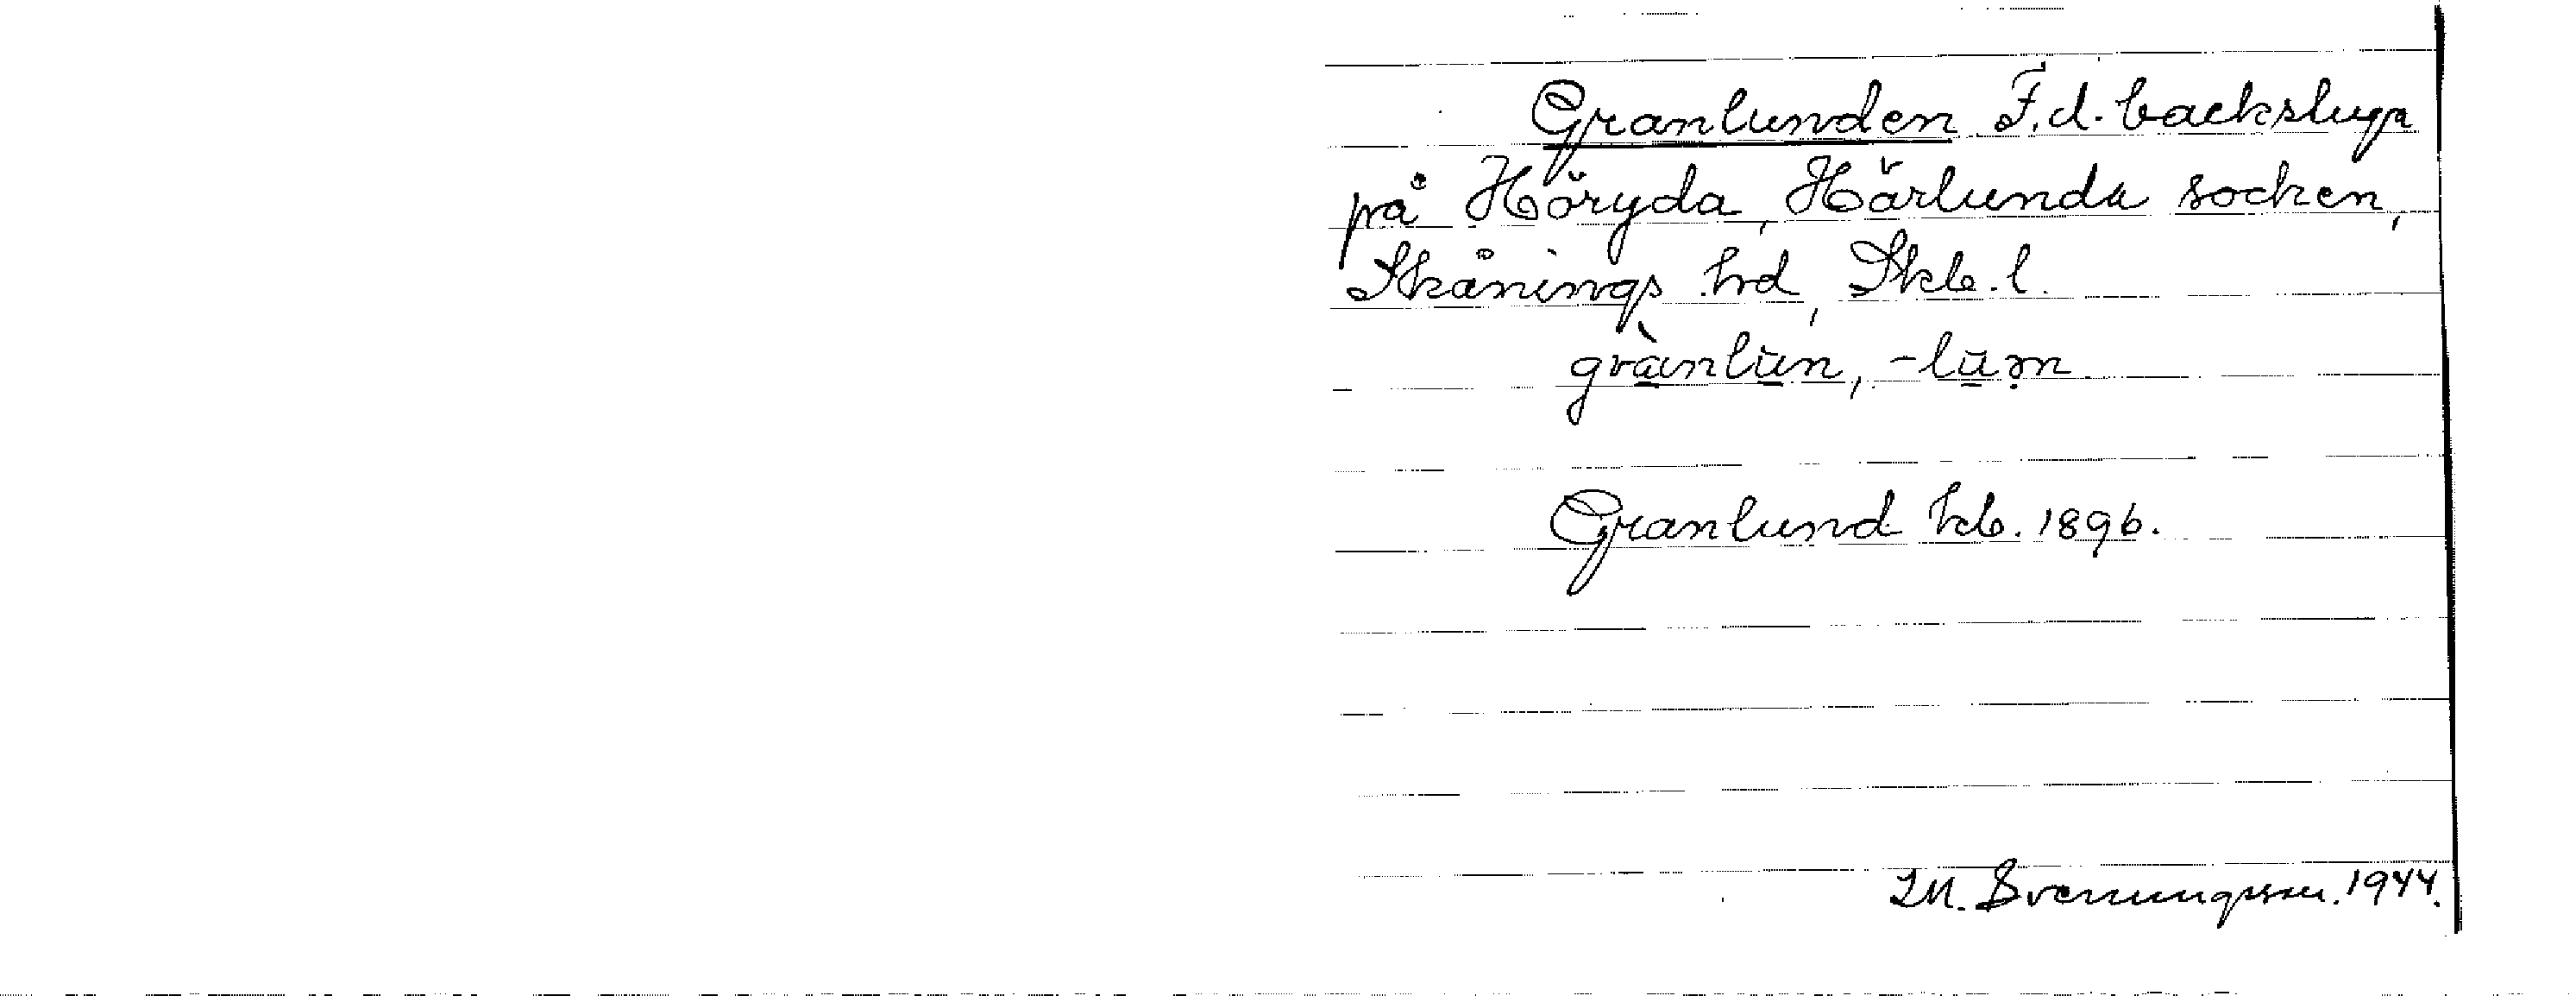 Granlunden F.d. backstuga
på Höryda, Härlunda socken,
Skånings hd, Skb. l.
grànlūn, -lūm
Granlund kb. 1896.
M. Svenungsson. 1944.